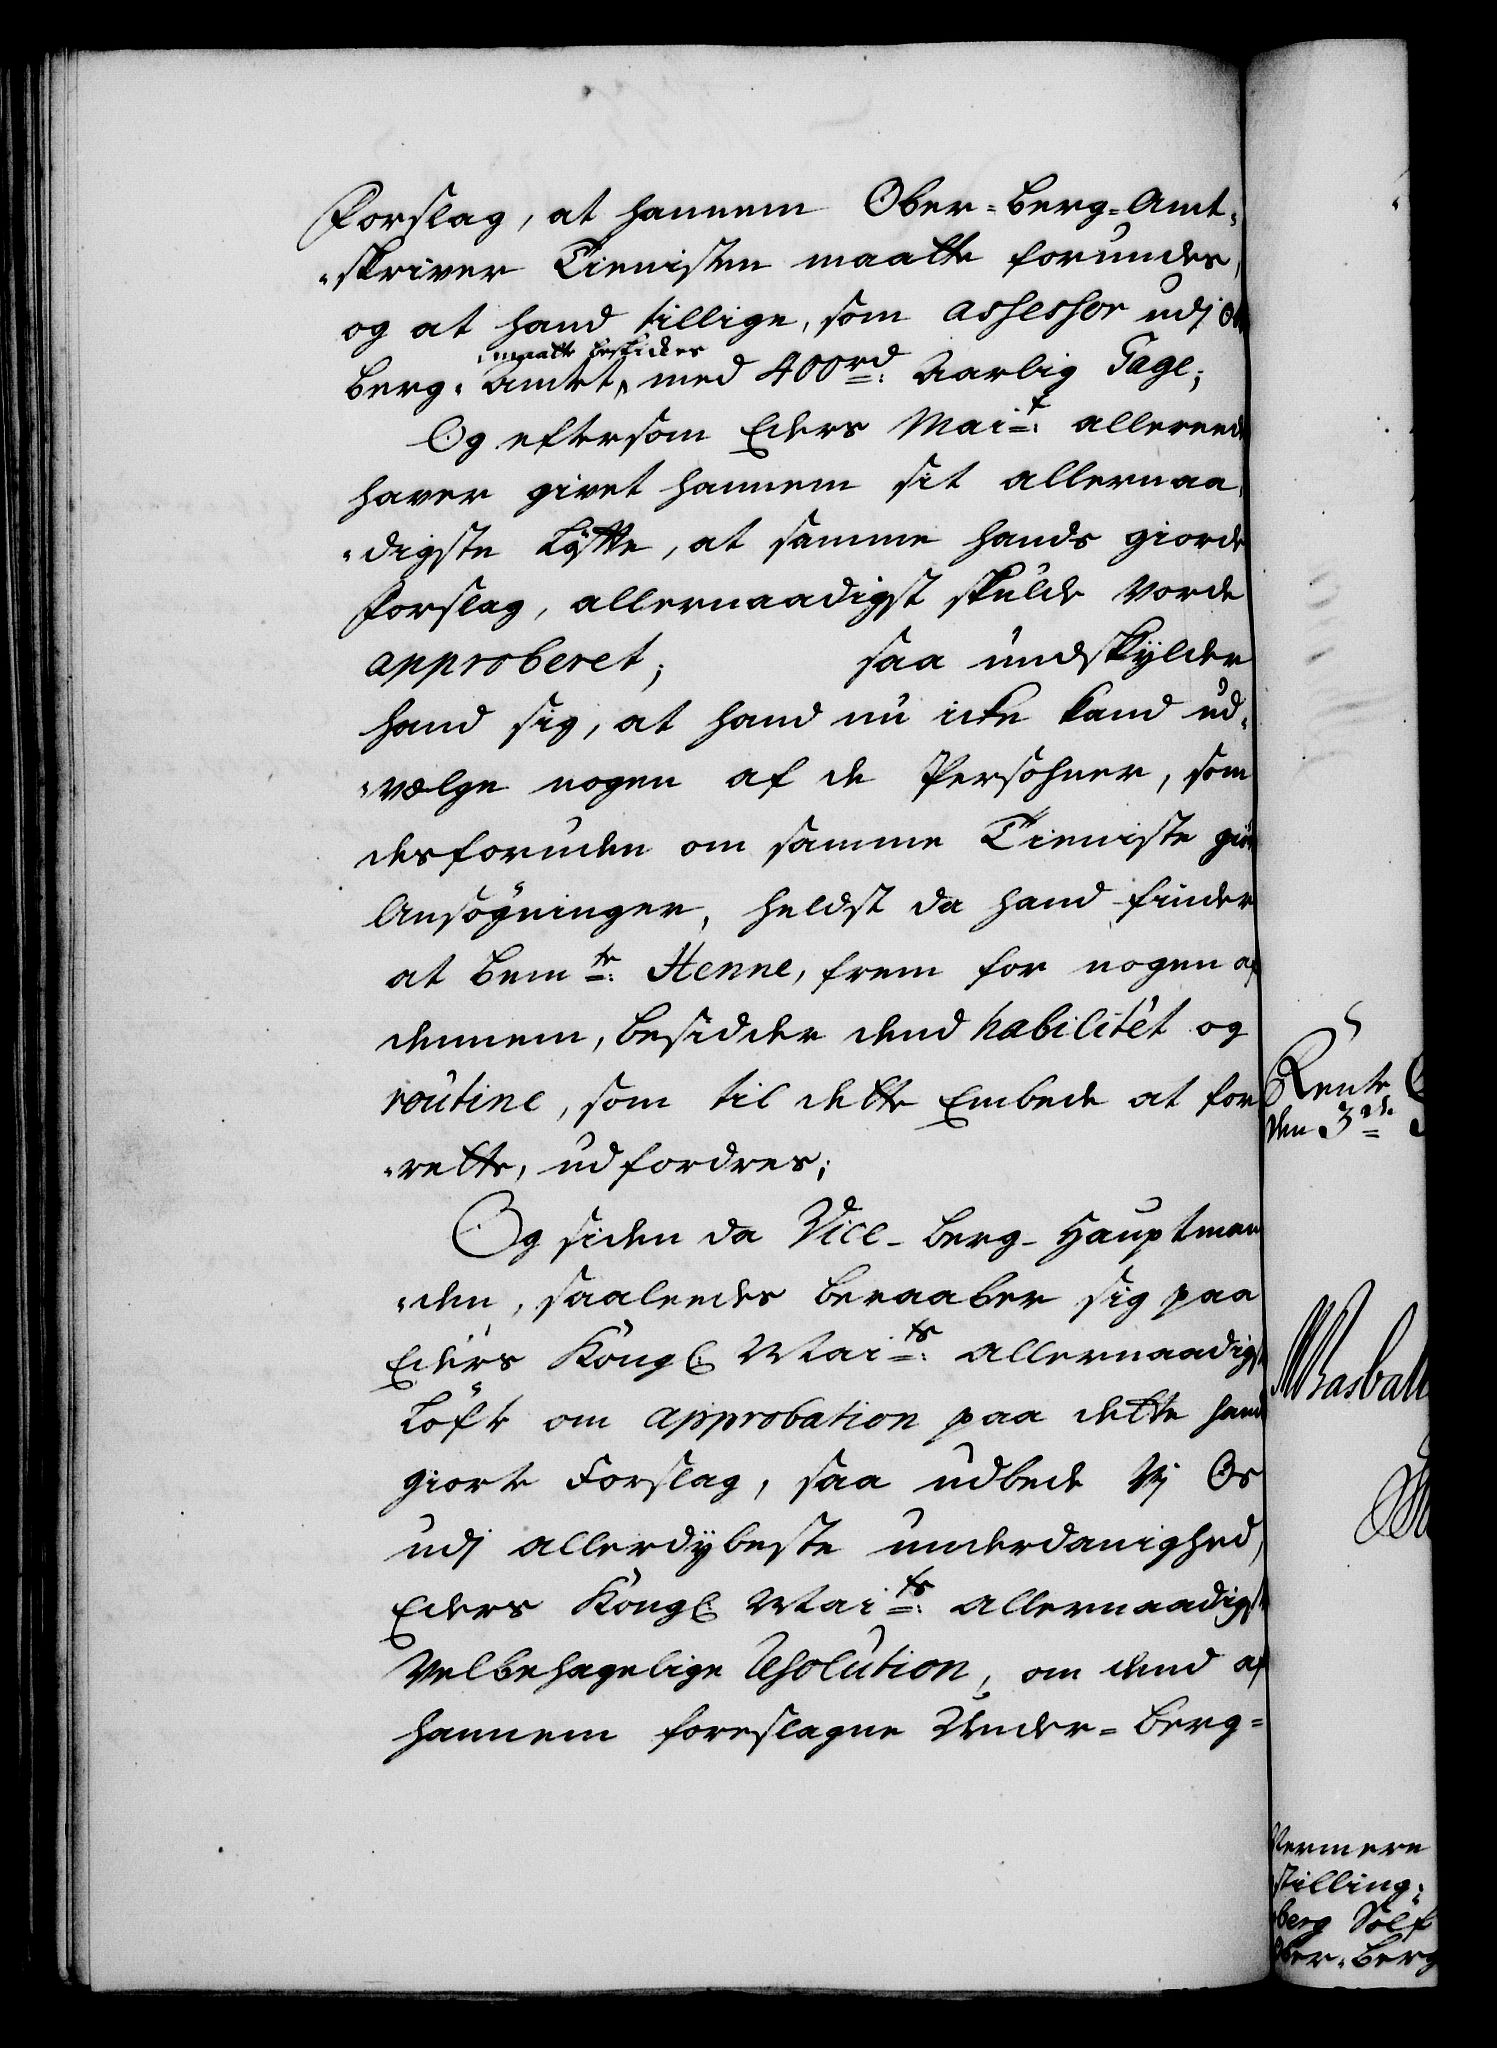 Forslag, at hannem Ober-Berg-Amt-
-skriver Tienisten maatte forundes,
og at hand tillige, som assessor udj Ob
maatte beskickes
Berg-Amtet, med 400 rd: Aarlig Gage;
Og eftersom Eders Mait: allereede
haver givet hannem sit allernaa-
-digste Løfte, at samme hands giorde
Forslag, allernaadigst skulde vorde
approberet; saa undskylder
hand sig, at hand nu icke kand ud-
-vælge nogen af de Persohner, som
desforuden om samme Tieniste giør
Ansøgninger, heldst da hand finder
at bemte: Henne, frem for nogen af
dennem, besidder dend habilitét og
routine, som til dette Embede at for
-rette, udfordres;
Og siden da Vice-Berg-Hauptman
-den, saaledes beraaber sig paa
Eders Kongl: Maits: allernaadigste
Løfte om approbation paa dette hans
giorte Forslag, saa udbede Vi Os
udj allerdybeste underdanighed,
Eders Kongl: Maits: allernaadigste
Velbehagelige Resolution, om dend af
hannem foreslagne Under-Berg-
Rente
den 3de
Nermere
stilling:
berg Sølf
Ober-Berg